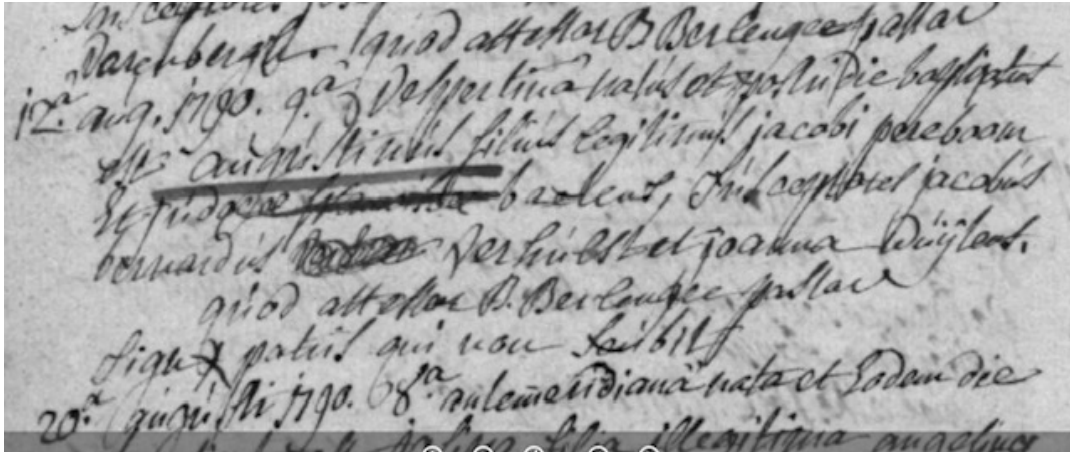 Susceptores
Darenbergh. quod attestor B Berlengee pastor
12.a aug. 1790. 9.a vespertina natus et postridie baptizatus
est augustinus filius legitimus jacobi pereboom
Et judocae baelens, Susceptores jacobus
bernardus verhulst et joanna Wuÿlens.
quod attestor B. Berlengee pastor
Sign X patris qui non scribit
20.a augusti 1790. 8.a antemeridiana nata et Eodem die
filia illegitima angelina